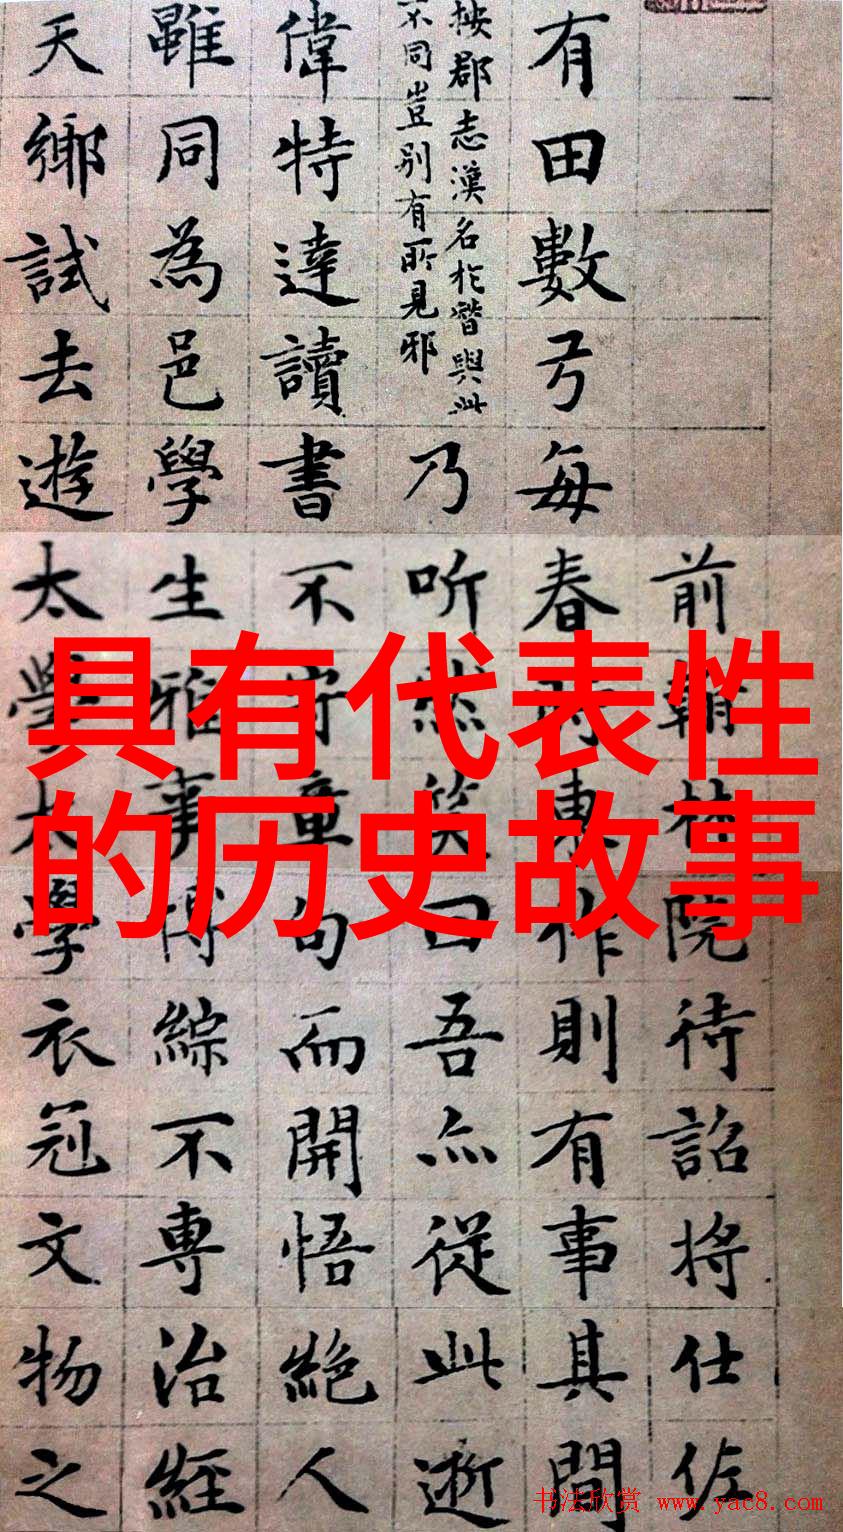 具有代表性
的历史故事
前翰林院待詔將仕佐
有田數每春雨東作則有事其間
按郡志漢名於朁與此
不同豈別有所見邪
乃听然笑曰吾亦從此逝
偉特達讀書不守章句而開悟絕人
雖同為邑學生雅事博綜不專治經
天鄉試去遊太學太學衣冠文物之
书法欣赏 www.yac8.com